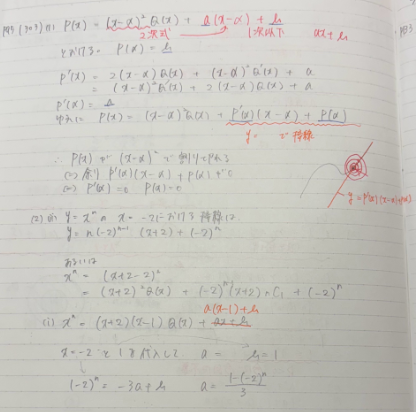 P(x) = (x-α)² Q(x) + a(x-α) + b
2次式 1次以下 ax+b
とおける P(α) = b
P'(x) = 2(x-α)Q(x) + (x-α)²Q'(x) + a
= (x-α)²Q'(x) + 2(x-α)Q(x) + a
P'(α) = a
ゆえに P(x) = (x-α)²Q(x) + P'(α)(x-α) + P(α)
y = 接線
∴ P(x) が (x-α)² で割りきれる
⇔ 余り P'(α)(x-α) + P(α) = 0
⇔ P'(α) = 0 P(α) = 0
y = P'(α)(x-α)+P(α)
(2) y = xⁿ の x = -2 における 接線は
y = n(-2)ⁿ⁻¹ (x+2) + (-2)ⁿ
あるいは
xⁿ = (x+2-2)ⁿ
= (x+2)²Q(x) + (-2)ⁿ⁻¹(x+2) nC₁ + (-2)ⁿ
a(x-1)+b
(i) xⁿ = (x+2)(x-1) Q(x) + ax+b
x = -2 と 1 を代入して a = b = 1
(-2)ⁿ = -3a+b a = (1-(-2)ⁿ)/3